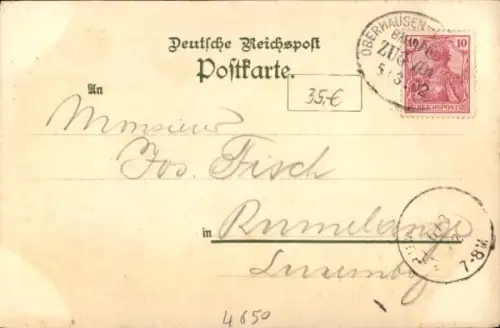 Deutsche Reichspost
Postkarte.
An
Monsieur
Jos. Fisch
in Rumelange
Luxemburg
35,-€
4650
OBERHAUSEN
BAHNPOST
ZUG
5/3 02
10
REICHSPOST
7-8M